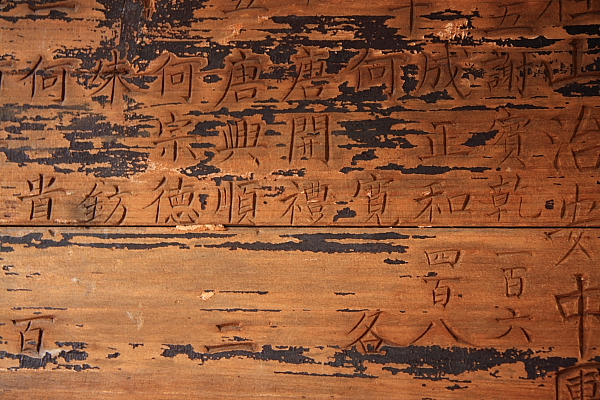 上治安中
五謝賓乾一百六
十成正和四百八
何寬各
唐開禮
唐興順二
何宗德
朱鈁
何貴百